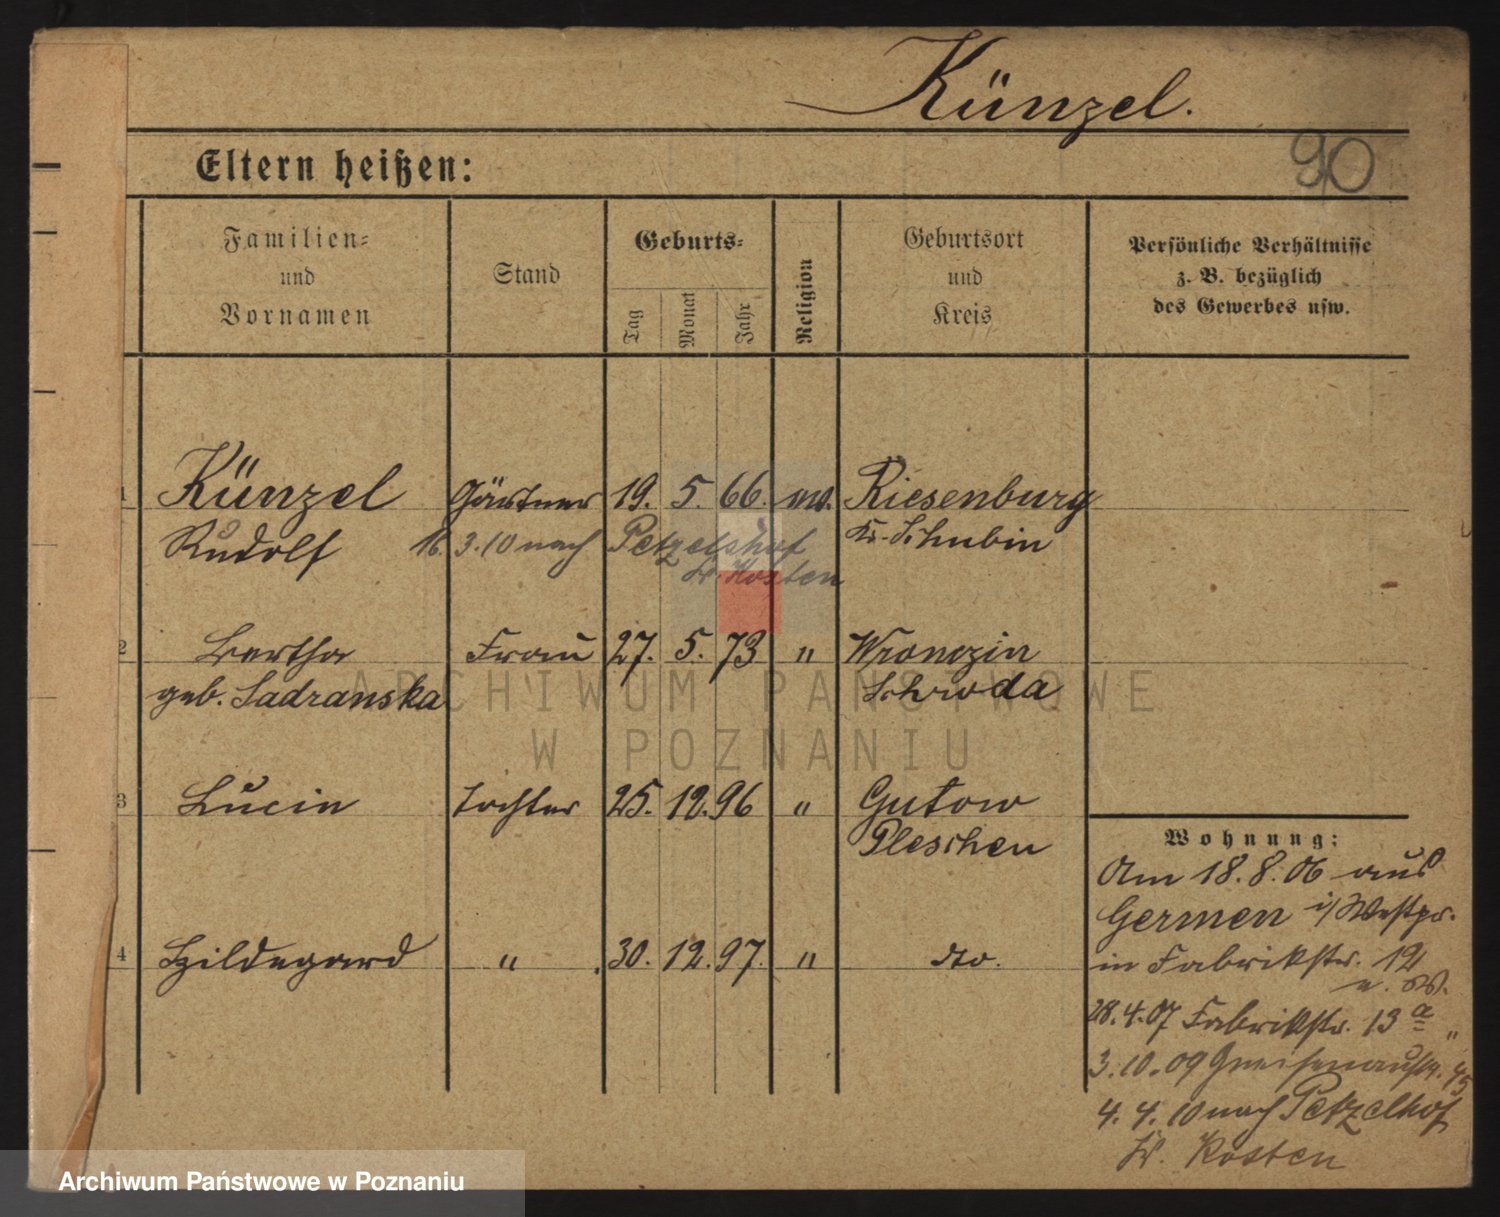 Künzel.
Eltern heißen:
90
Familien-
und
Vornamen
Stand
Geburts-
Tag
Monat
Jahr
Religion
Geburtsort
und
Kreis
Persönliche Verhältnisse
z. B. bezüglich
des Gewerbes usw.
1 Künzel Gärtner 19. 5. 66. Riesenburg
Rudolf 16. 3. 10 nach Petzelshof Kr. Schubin
Kr. Kosten
2 Bertha Frau 27. 5. 73 " Wronczin
geb. Sadranska Schroda
3 Lucie Tochter 25. 12. 96 " Gutow
Pleschen
4 Hildegard " 30. 12. 97. " dto.
Wohnung:
Am 18. 8. 06 aus
Germen i/Westpr.
in Fabrikstr. 12
28. 4. 07 Fabrikstr. 13 a "
3. 10. 09 Gneisenaustr. 45
4. 4. 10 nach Petzelhof
Kr. Kosten
ARCHIWUM PAŃSTWOWE
W POZNANIU
Archiwum Państwowe w Poznaniu